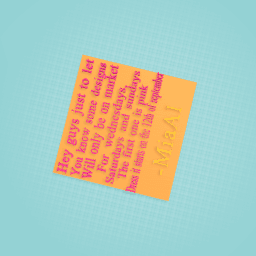 Hey guys just to let
You know some designs
Will only be on market
For wednesdays,
Saturdays and sundays
The first one is punk
Desols it starts on the 12th of september
-MiaAJ